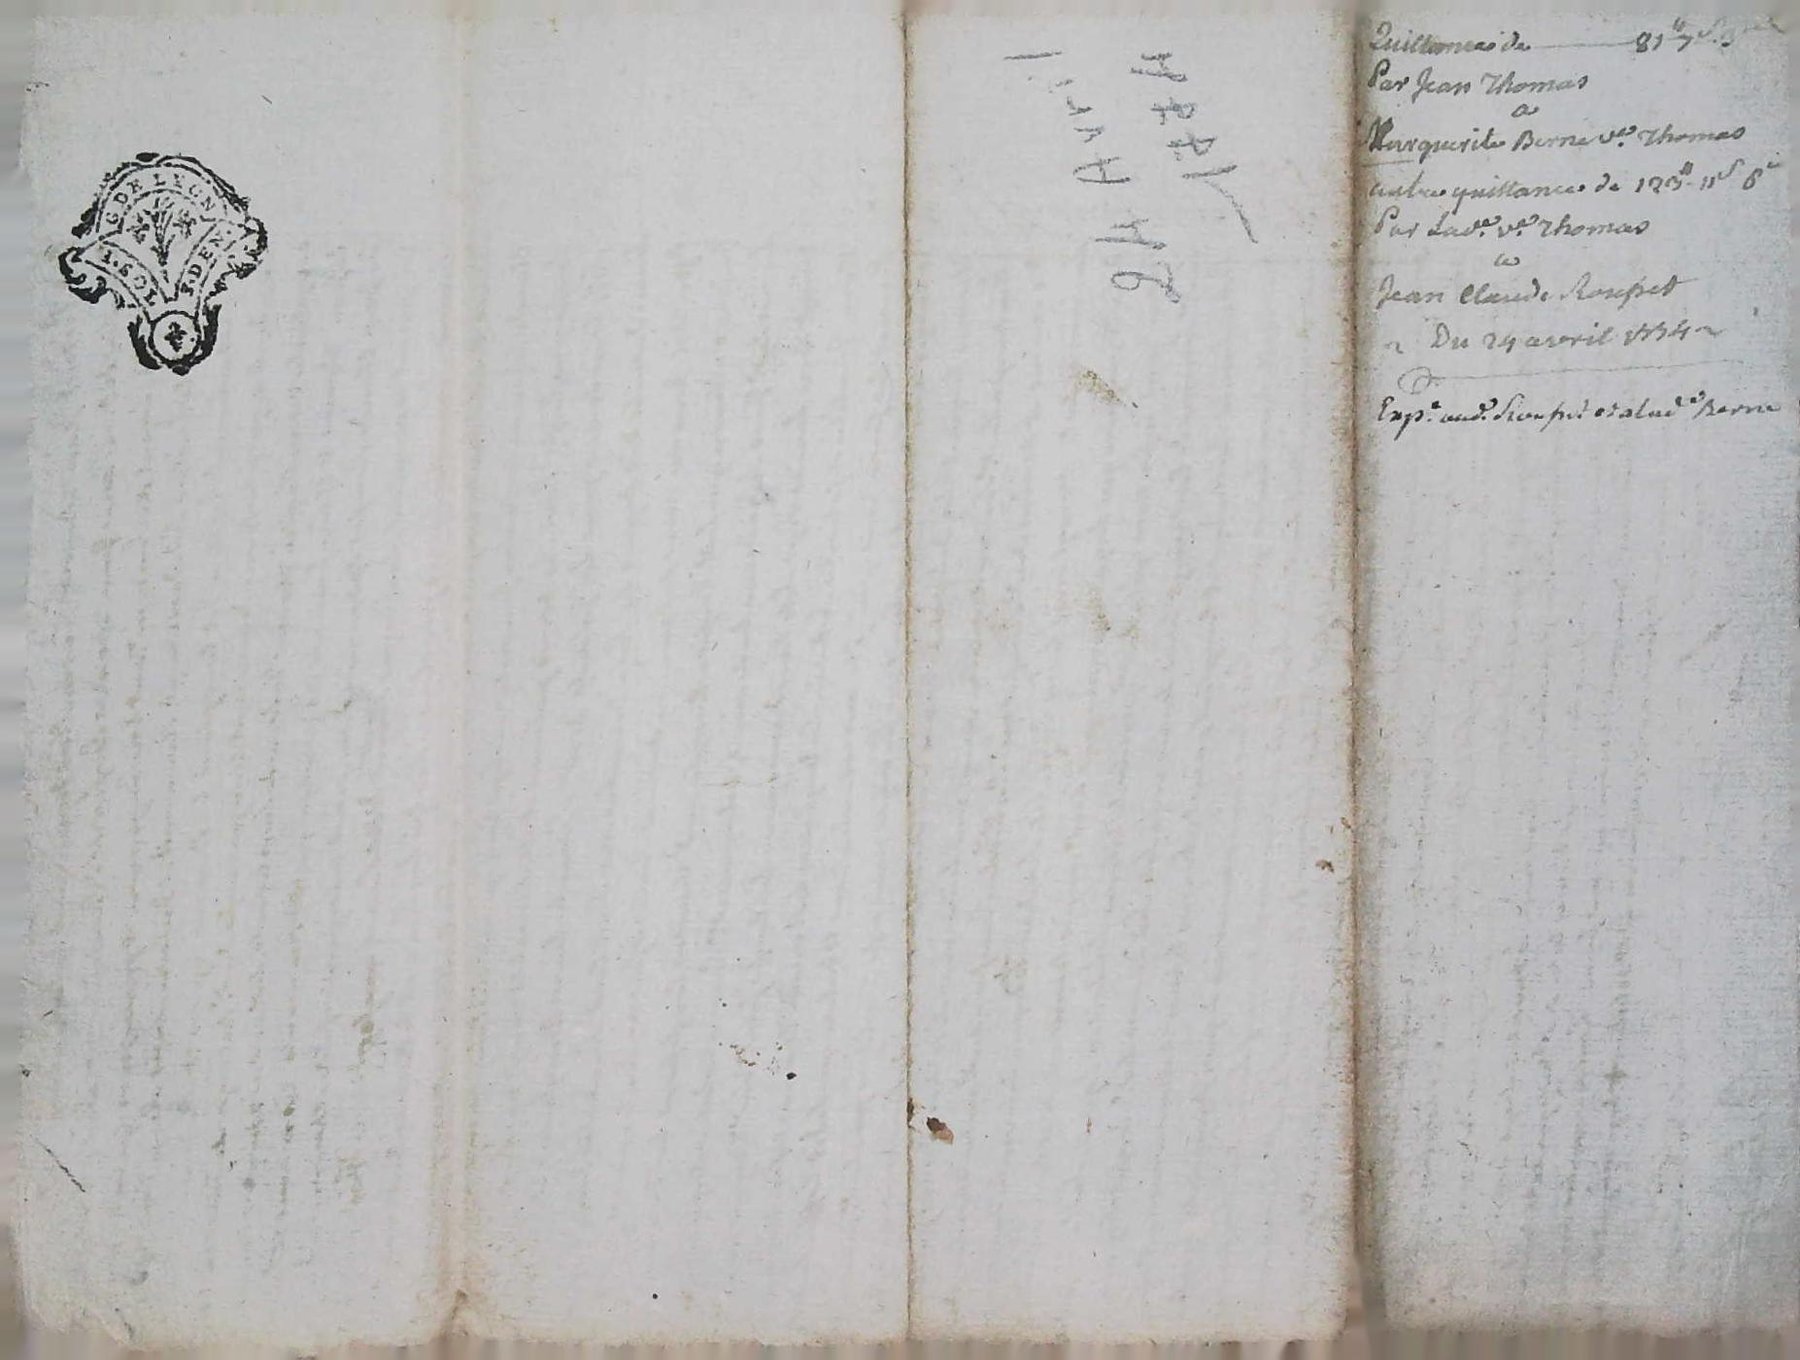 G. DE LYON
1. SOL
5. DEN.
1774
24 Avril
Quittance de 81ᵗᵗ 7ˢ
Par Jean Thomas
a
Marguerite Berne vᵉ Thomas
autre quittance de 123ᵗᵗ 11ˢ 6ᵈ
Par Ladᵉ vᵉ Thomas
a
Jean Claude
Du 24 avril 1774
Expᵉ aud. et a lad.ᵉ Berne